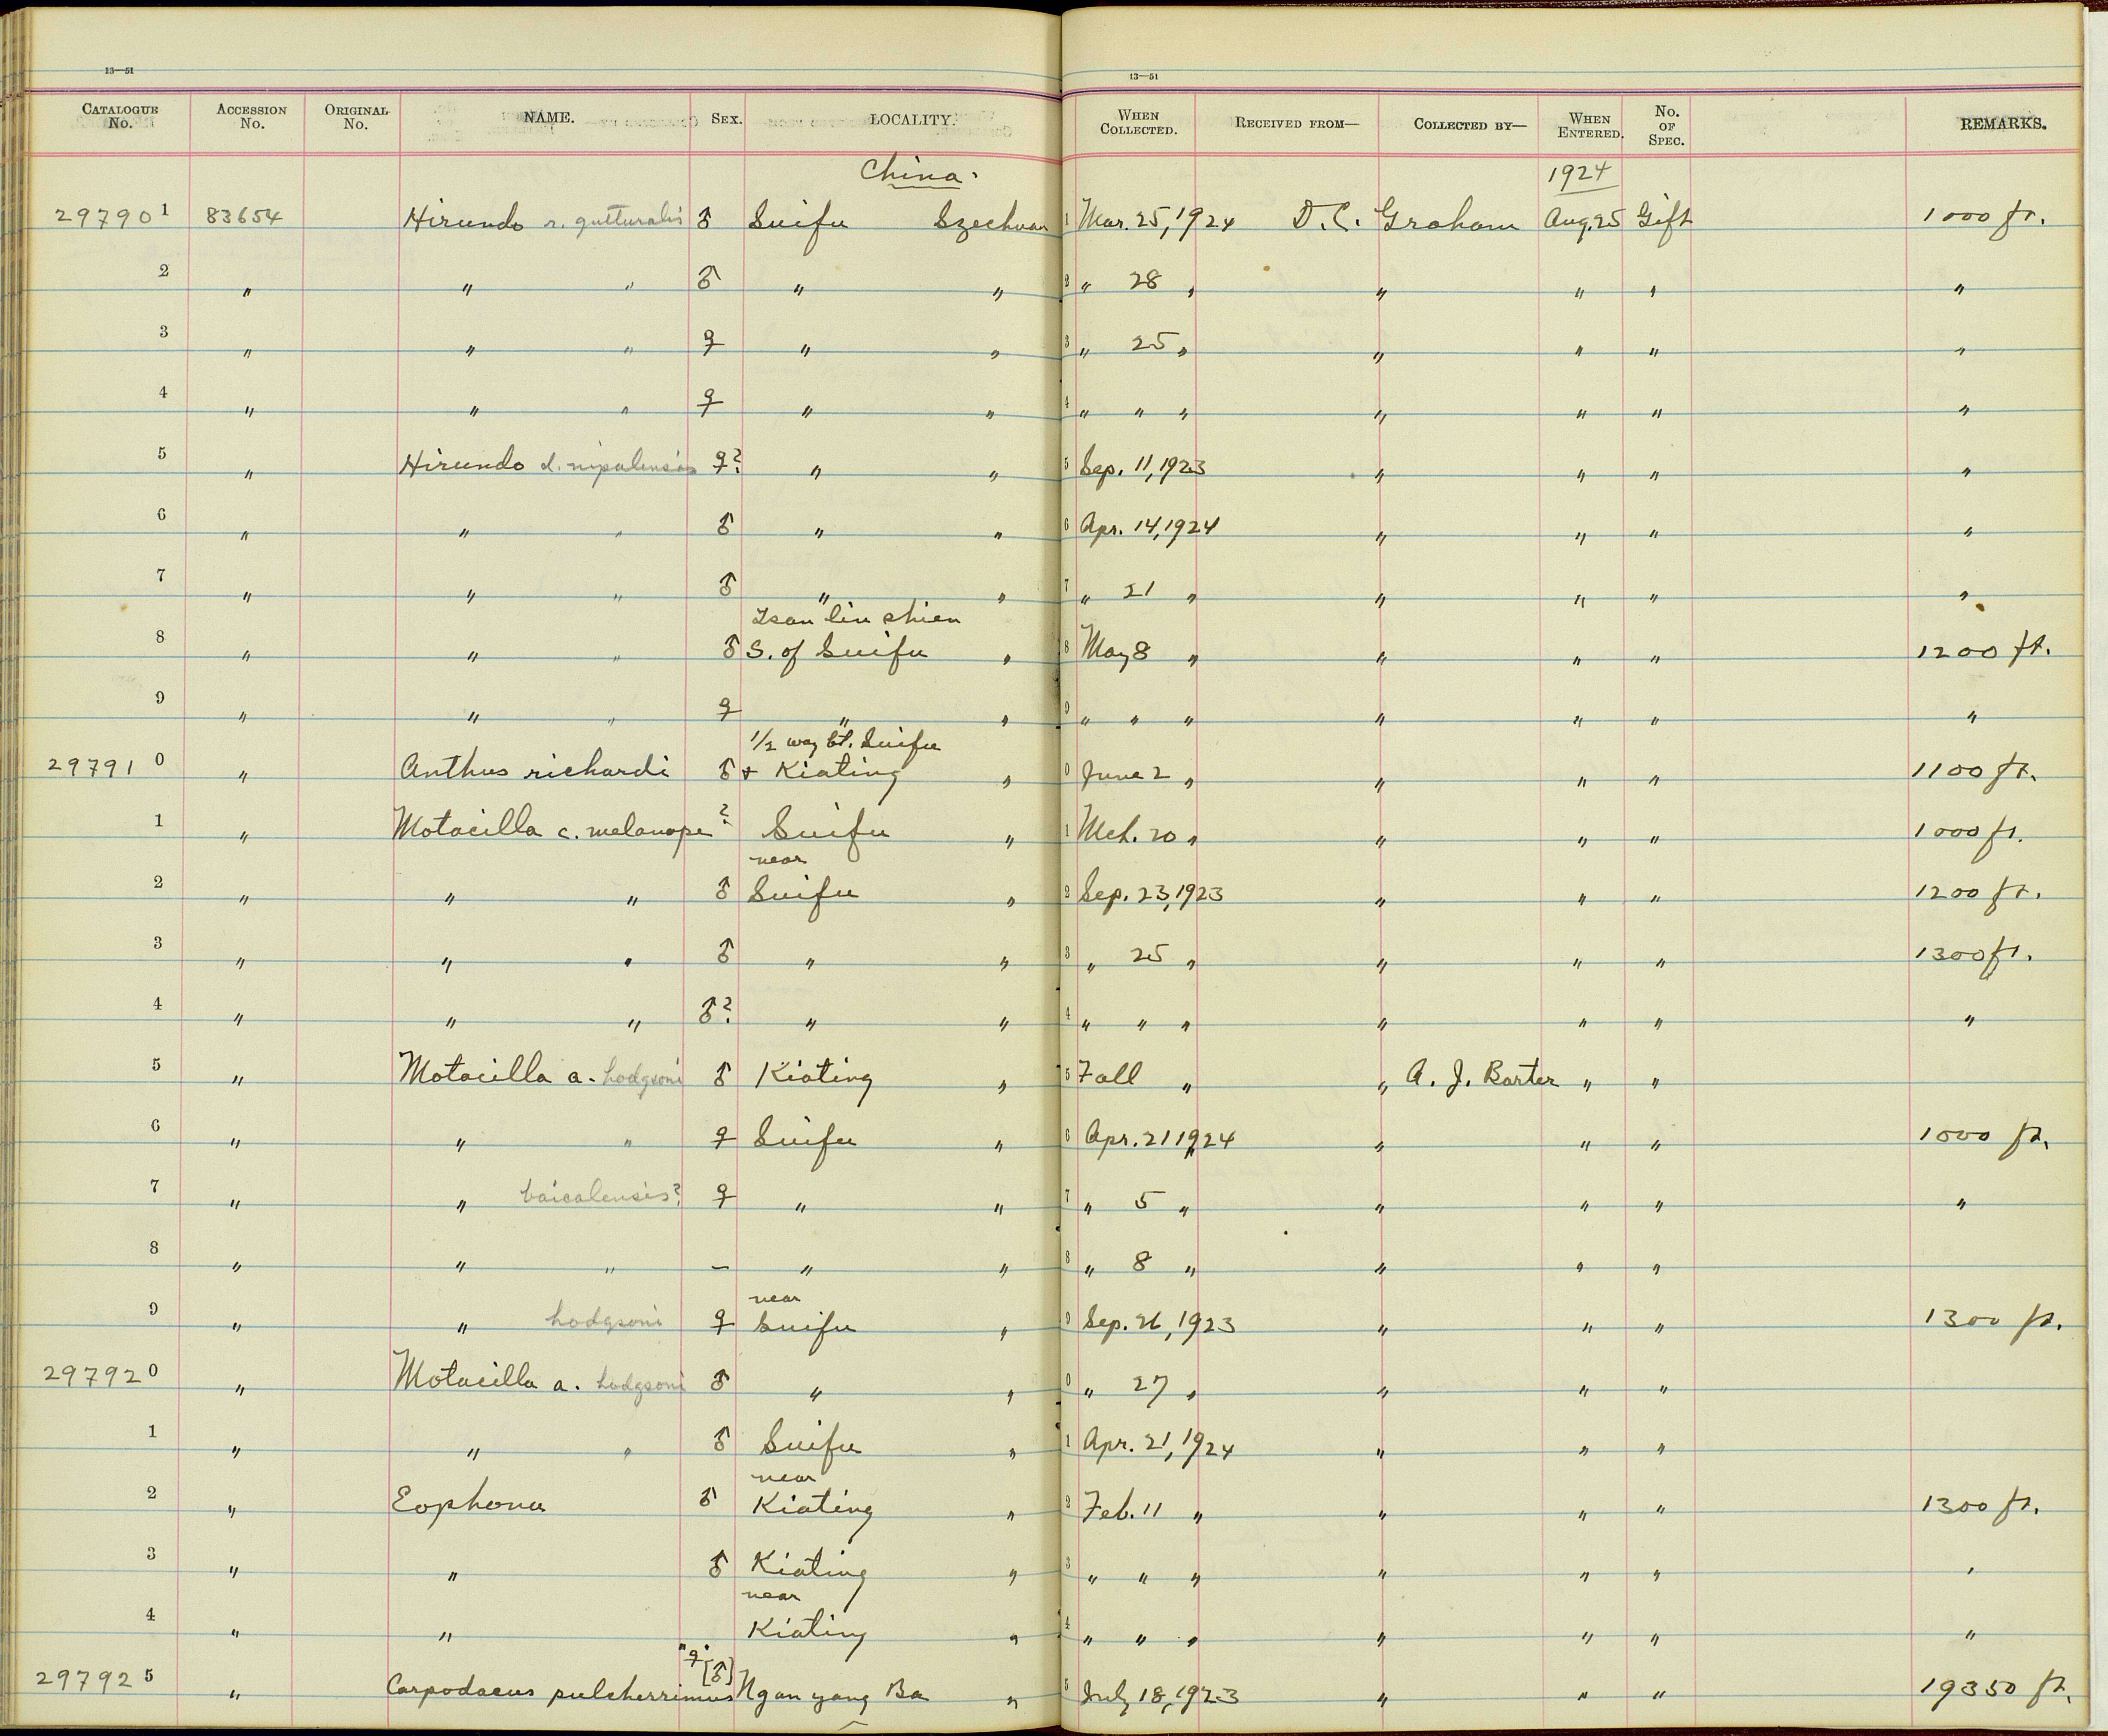 13—51 13—51
CATALOGUE No. ACCESSION No. ORIGINAL No. NAME. SEX. LOCALITY. WHEN COLLECTED. RECEIVED FROM— COLLECTED BY— WHEN ENTERED. No. OF SPEC. REMARKS.
China. 1924
29790 1 83654 Hirundo r. gutturalis ♂ Suifu Szechuan 1 Mar. 25, 1924 D. C. Graham Aug. 25 Gift 1000 ft.
2 " " " ♂ " " 2 " 28 " " " " "
3 " " " ♀ " " 3 " 25 " " " " "
4 " " " ♀ " " 4 " " " " " " "
5 " Hirundo d. nipalensis ♀? " " 5 Sep. 11, 1923 " " " "
6 " " " ♂ " " 6 Apr. 14, 1924 " " " "
7 " " " ♂ " " 7 " 21 " " " " "
Tsan lin shien
8 " " " ♂ S. of Suifu " 8 May 8 " " " " 1200 ft.
9 " " " ♀ " " 9 " " " " " " "
1/2 way bt. Suifu
29791 0 " Anthus richardi ♂ + Kiating " 0 June 2 " " " " 1100 ft.
1 " Motacilla c. melanope ? Suifu " 1 Mch. 20 " " " " 1000 ft.
near
2 " " " ♂ Suifu " 2 Sep. 23, 1923 " " " 1200 ft.
3 " " " ♂ " " 3 " 25 " " " " 1300 ft.
4 " " " ♂? " " 4 " " " " " " "
5 " Motacilla a. hodgsoni ♂ Kiating " 5 Fall " " A. J. Barter " "
6 " " " ♀ Suifu " 6 Apr. 21 1924 " " " 1000 ft.
7 " " baicalensis? ♀ " " 7 " 5 " " " " "
8 " " " – " " 8 " 8 " " " "
near
9 " " hodgsoni ♀ Suifu " 9 Sep. 26, 1923 " " " 1300 ft.
29792 0 " Motacilla a. hodgsoni ♂ " " 0 " 27 " " " "
1 " " " ♂ Suifu " 1 Apr. 21, 1924 " " "
near
2 " Eophona ♂ Kiating " 2 Feb. 11 " " " " 1300 ft.
3 " " ♂ Kiating " 3 " " " " " " "
near
4 " " Kiating " 4 " " " " " " "
"♀" [♂]
29792 5 " Carpodacus pulcherrimus Ngan yang Ba " 5 July 18, 1923 " " " 19350 ft.